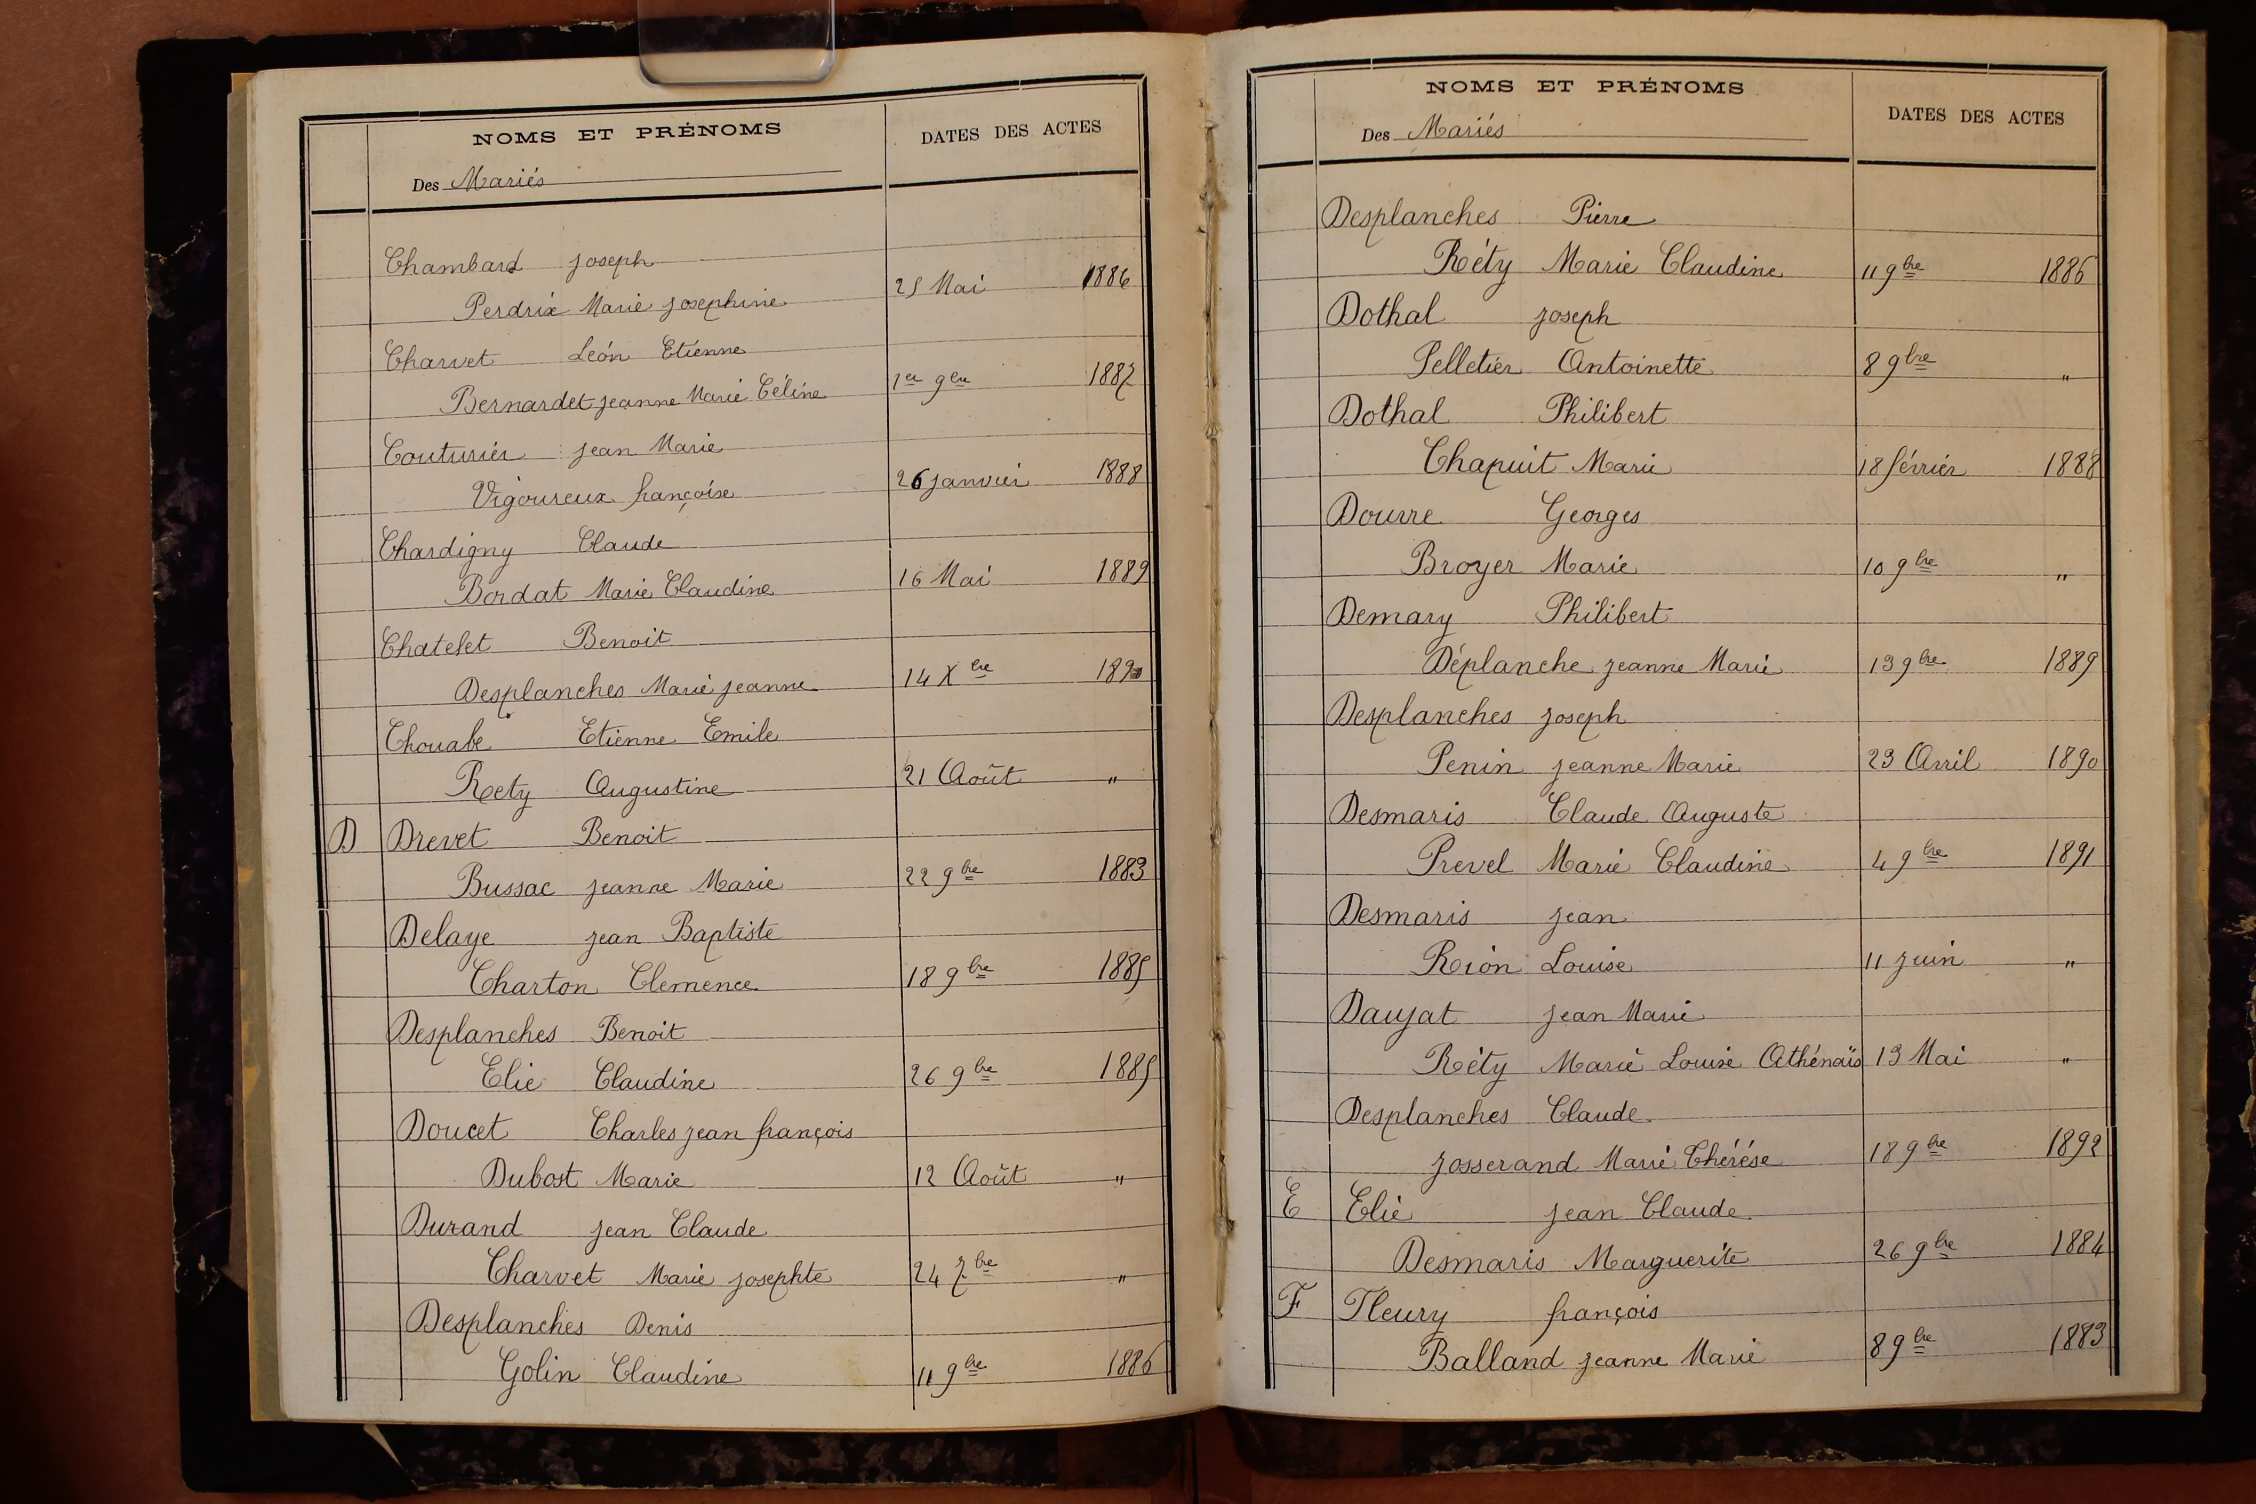 NOMS ET PRÉNOMS
DATES DES ACTES
Des Mariés
Chambard Joseph
Perdrix Marie Josephine 25 Mai 1886
Charvet Léon Etienne
Bernardet Jeanne Marie Céline 1er 9bre 1887
Couturier Jean Marie
Vigoureux françoise 26 Janvier 1888
Chardigny Claude
Bordat Marie Claudine 16 Mai 1889
Chatelet Benoit
Desplanches Marie Jeanne 14 Xbre 1890
Chouale Etienne Emile
Rety Augustine 21 Août "
D Drevet Benoit
Bussac Jeanne Marie 22 9bre 1883
Delaye Jean Baptiste
Charton Clemence 18 9bre 1885
Desplanches Benoit
Elie Claudine 26 9bre 1885
Doucet Charles Jean françois
Dubost Marie 12 Août "
Durand Jean Claude
Charvet Marie Josephte 24 7bre "
Desplanches Denis
Golin Claudine 11 9bre 1886
NOMS ET PRÉNOMS
DATES DES ACTES
Des Mariés
Desplanches Pierre
Réty Marie Claudine 11 9bre 1886
Dothal Joseph
Pelletier Antoinette 8 9bre "
Dothal Philibert
Chapuit Marie 18 février 1888
Dourre Georges
Broyer Marie 10 9bre "
Demary Philibert
Déplanche Jeanne Marie 13 9bre 1889
Desplanches Joseph
Penin Jeanne Marie 23 Avril 1890
Desmaris Claude Auguste
Prevel Marie Claudine 4 9bre 1891
Desmaris Jean
Rion Louise 11 Juin "
Daujat Jean Marie
Réty Marie Louise Athénaïs 13 Mai "
Desplanches Claude
Josserand Marie Thérése 18 9bre 1892
E Elie Jean Claude
Desmaris Marguerite 26 9bre 1884
F Fleury françois
Balland Jeanne Marie 8 9bre 1883